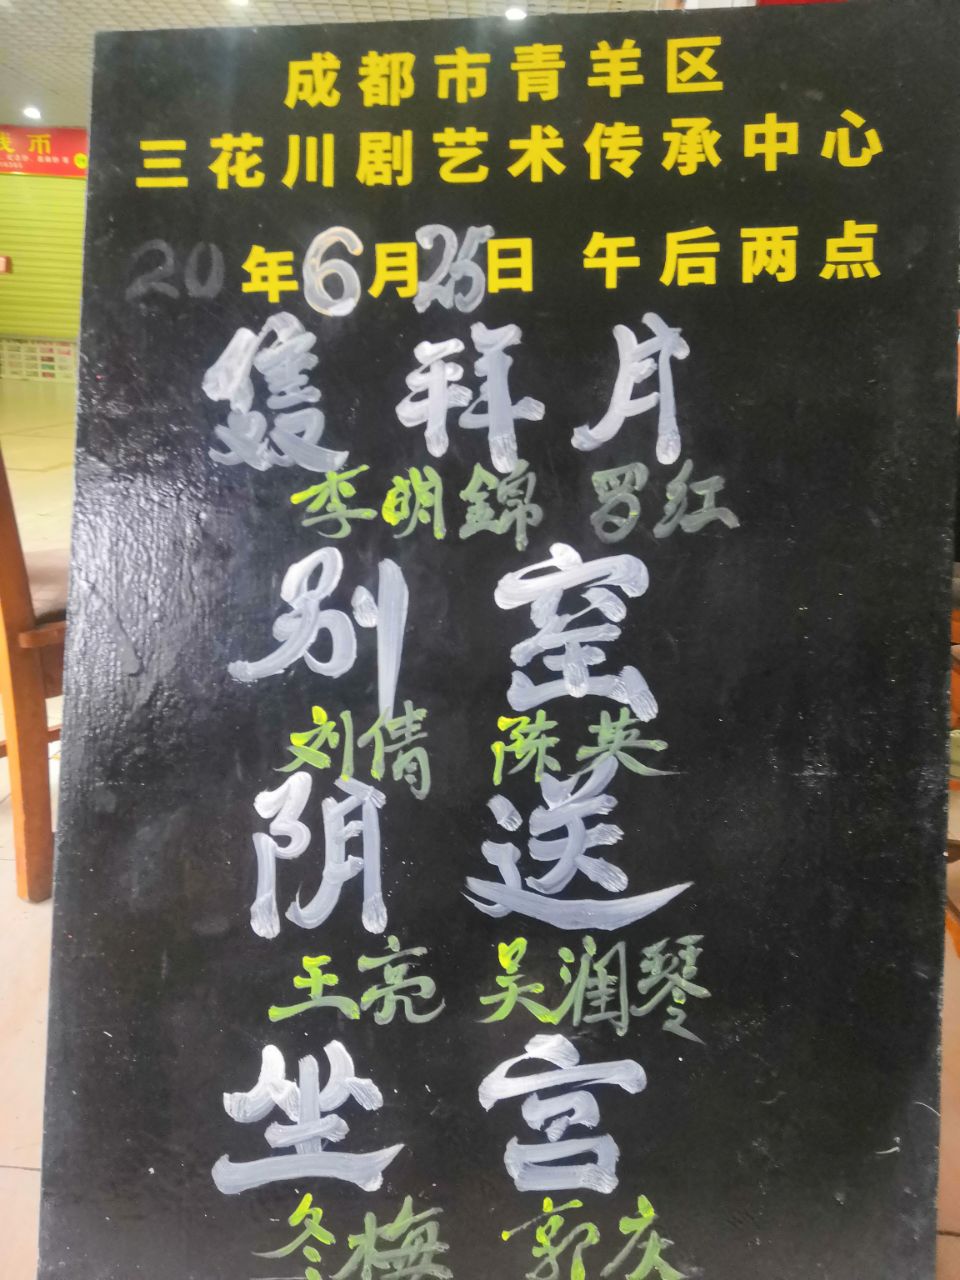 成都市青羊区
三花川剧艺术传承中心
20年6月25日 午后两点
雙拜月
李明錦 罗红
别窑
刘倩 陈英
阴送
王亮 吴润琴
坐宫
冬梅 郭庆